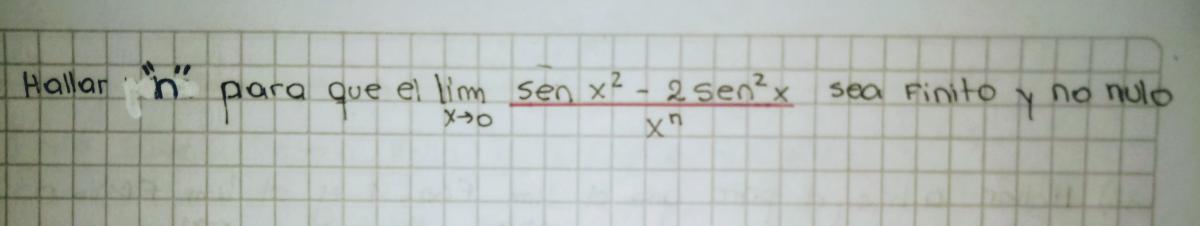 Hallar "n" para que el lim sen x² - 2 sen² x sea Finito y no nulo
x→0 xⁿ